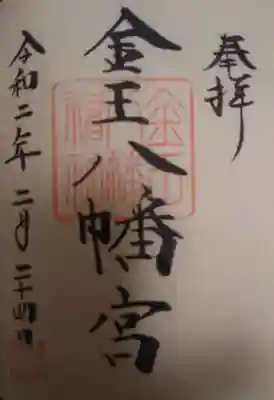 奉拝
金王八幡宮
令和二年二月二十四日